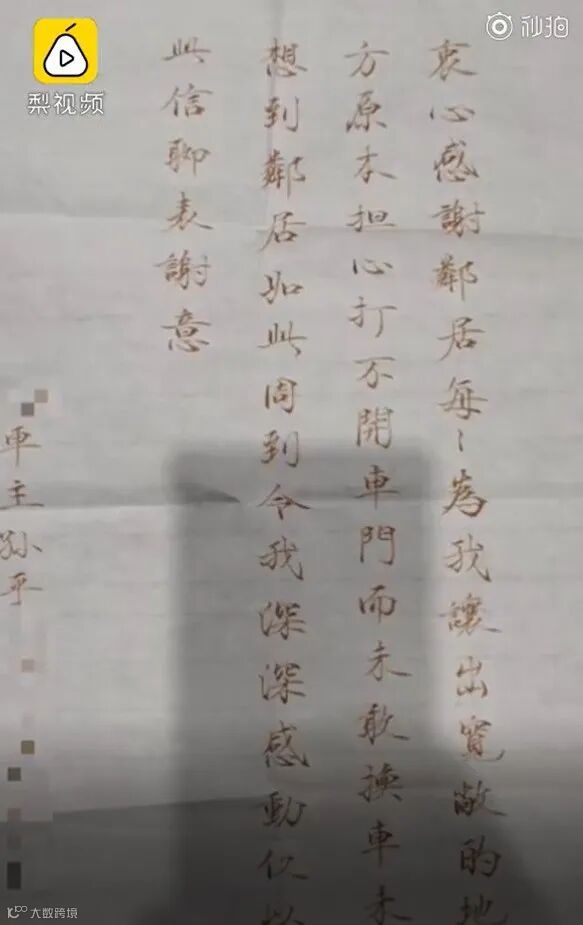 梨视频
秒拍
衷心感謝鄰居每々為我讓出寬敞的地
方原本担心打不開車門而未敢換車未
想到鄰居如此周到令我深深感動仅以
此信聊表謝意
車主孙平
大数跨境